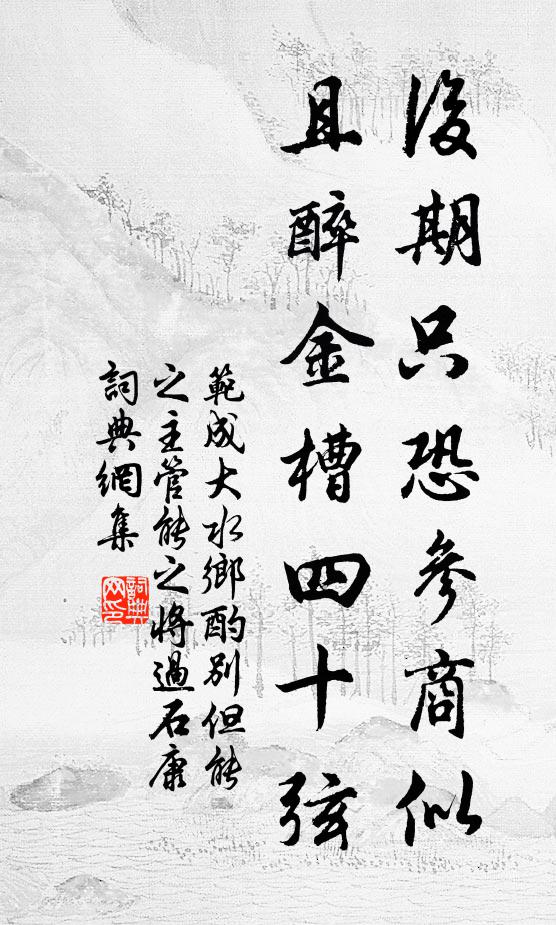 後期只恐參商似
且醉金槽四十弦
範成大水鄉酌別但能
之主管能之將過石康
詞典網集
詞典